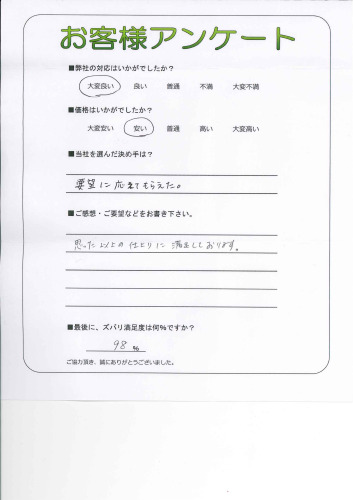 お客様アンケート
■弊社の対応はいかがでしたか？
大変良い 良い 普通 不満 大変不満
■価格はいかがでしたか？
大変安い 安い 普通 高い 大変高い
■当社を選んだ決め手は？
要望に応えてもらえた。
■ご感想・ご要望などをお書き下さい。
思った以上の仕上りに満足しております。
■最後に、ズバリ満足度は何%ですか？
98 %
ご協力頂き、誠にありがとうございました。